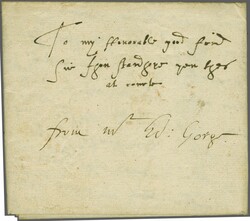 To my honorable good frind
Sir Jhon Stanhope geve thes
at courte
from mr Ed: Gorge